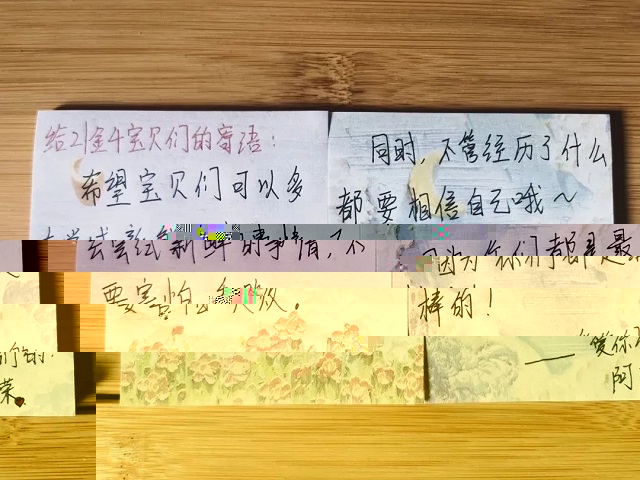 给21金4宝贝们的寄语：
希望宝贝们可以多
去尝试新鲜的事情，不
要害怕失败。
同时，不管经历了什么
都要相信自己哦～
因为你们都是最
棒的！
——爱你
阿
荣